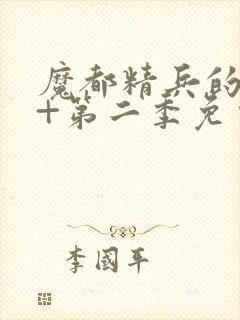 魔都精兵的
+第二季免
李國平